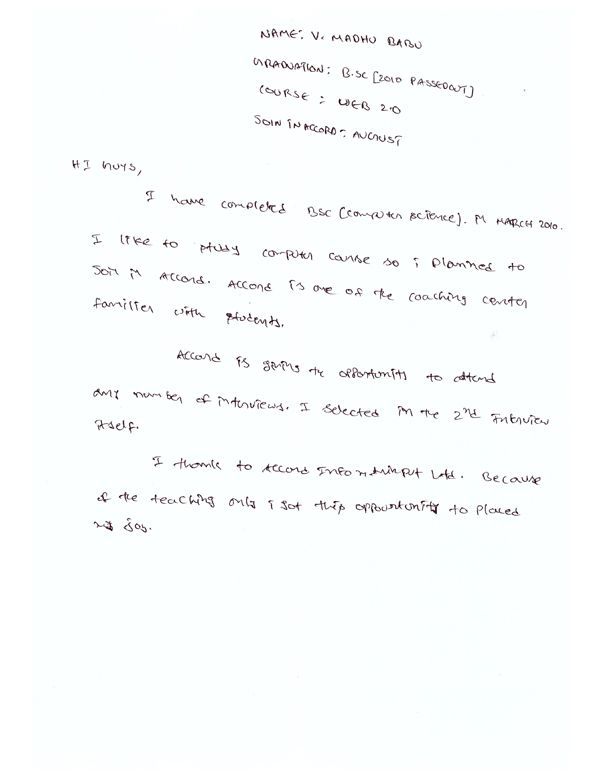 NAME: V. MADHU BABU
GRADUATION: B.SC [2010 PASSEDOUT]
COURSE: WEB 2.0
JOIN IN ACCORD: AUGUST
HI GUYS,
I have completed BSC [computer science]. IN MARCH 2010.
I like to study computer course so i planned to
join in Accord. Accord is one of the coaching center
familier with students.
Accord is giving the opportunity to attend
any number of interviews. I selected in the 2nd Interview
itself.
I thank to Accord Info Ltd. Because
of the teaching only i got this oppourtunity to placed
job.